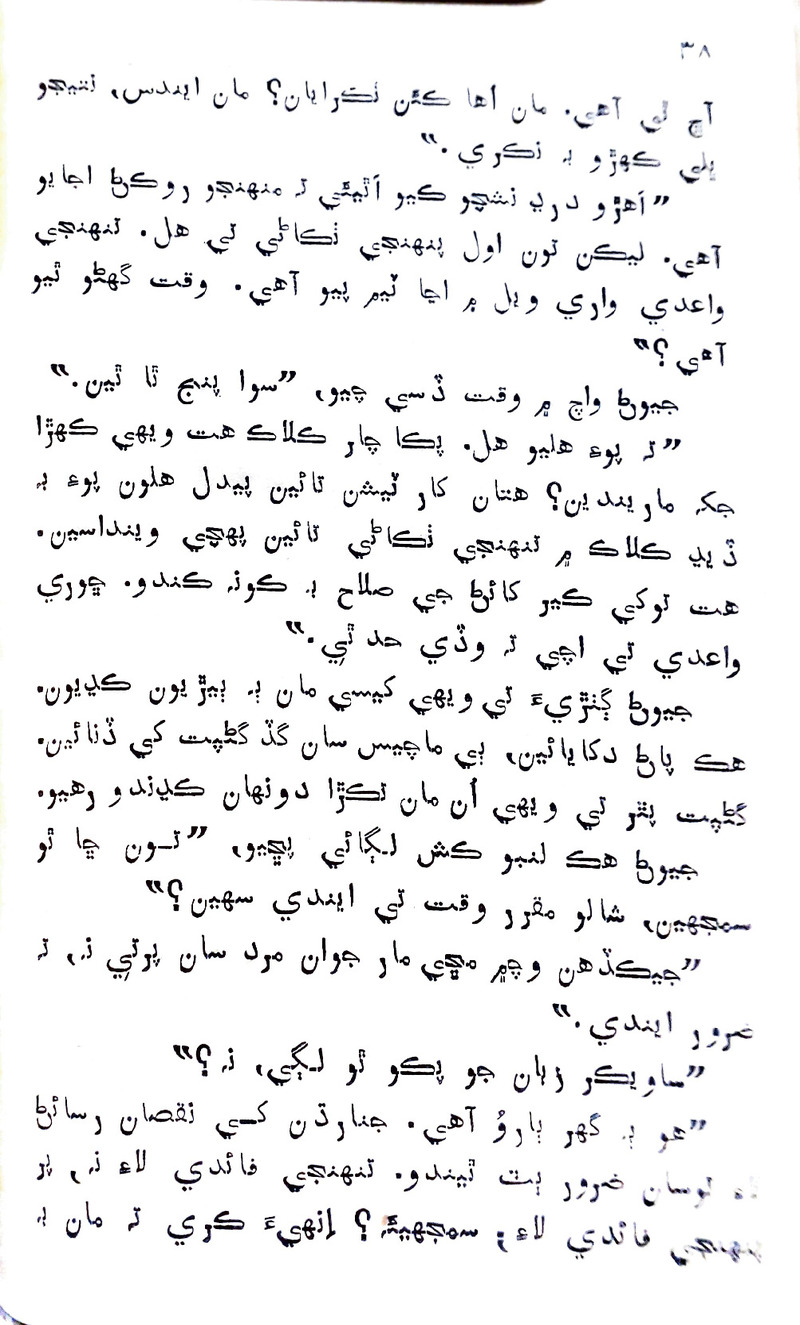 ۳۸
آڇ ٿي آهي. مان اُها ڪئن ٺڪرايان؟ مان ايندس، نتيجو
ڀلي ڪهڙو بہ نڪري.“
”اَهڙو درڍ نشچو ڪيو اَٿيئي تہ منهنجو روڪڻ اجايو
آهي. ليڪن تون اول پنهنجي ٺڪاڻي تي هل. تنهنجي
واعدي واري ويل ۾ اڃا ٽيم پيو آهي. وقت گهڻو ٿيو
آهي؟“
جيوڻ واچ ۾ وقت ڏسي چيو، ”سوا پنج ٿا ٿين.“
”تہ پوءِ هليو هل. پڪا چار ڪلاڪ هت ويهي ڪهڙا
جکہ ماريندين؟ هتان ڪار ٽيشن تائين پيدل هلون پوءِ بہ
ڏيڍ ڪلاڪ ۾ تنهنجي ٺڪاڻي تائين پهچي وينداسين.
هت توکي ڪير کائڻ جي صلاح بہ ڪونہ ڪندو. ڇوري
واعدي تي اچي تہ وڏي حد ٿي.“
جيوڻ ڳنڙيءَ تي ويهي کيسي مان بہ ٻيڙيون ڪڍيون.
هڪ پاڻ دکايائين، ٻي ماچيس سان گڏ گڻپت کي ڏنائين.
گڻپت پٿر تي ويهي اُن مان تڪڙا دونهان ڪڍندو رهيو.
جيوڻ هڪ لنبو ڪش لڳائي پڇيو، ”تون ڇا ٿو
سمجهين، شالو مقرر وقت تي ايندي سهين؟“
”جيڪڏهن وچ۾ مڇي مار جوان مرد سان پرتي نہ، تہ
ضرور ايندي.“
”ساويڪر زبان جو پڪو ٿو لڳي، نہ؟“
”هو بہ گهر ٻارؤُ آهي. جنارڌن کي نقصان رسائڻ
لاءِ توسان ضرور ٻٽ ٿيندو. تنهنجي فائدي لاءِ نہ، پر
پنهنجي فائدي لاءِ؛ سمجهيئہ؟ اِنهيءَ ڪري تہ مان بہ